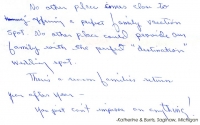 No other place comes close to
offering a perfect family vacation
spot. No other place could provide our
family with the perfect "destination"
wedding spot.
There's a reason families return
year after year -
You just can't improve on anything!
-Katherine & Boris, Saginaw, Michigan